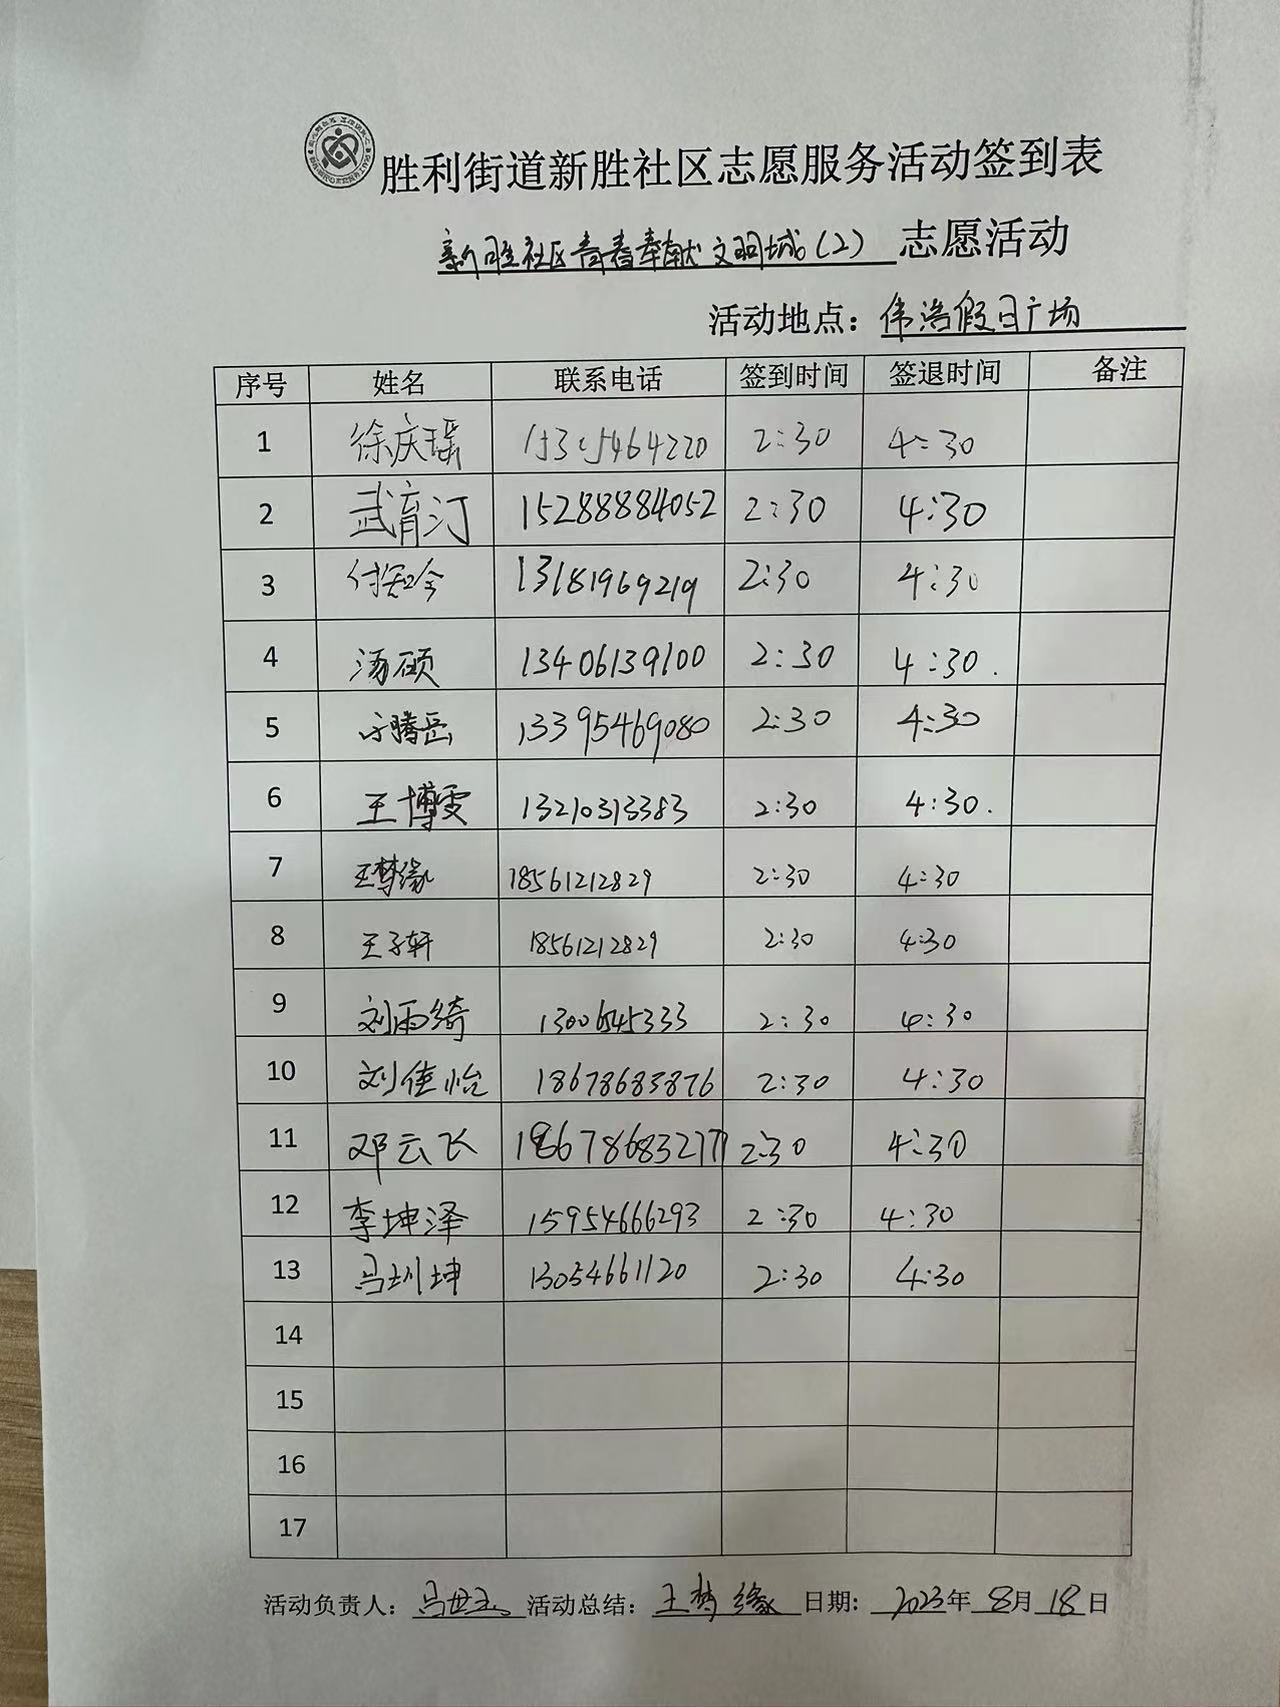 胜利街道新胜社区志愿服务活动签到表
新胜社区青春奉献文明城(2) 志愿活动
活动地点：伟浩假日广场
序号 姓名 联系电话 签到时间 签退时间 备注
1 徐庆瑶 15315464220 2:30 4:30
2 武育汀 15288884052 2:30 4:30
3 13181969219 2:30 4:30
4 汤硕 13406139100 2:30 4:30.
5 腾岳 13395469080 2:30 4:30
6 王博雯 13210313383 2:30 4:30.
7 王梦缘 18561212829 2:30 4:30
8 王子轩 18561212829 2:30 4:30
9 刘雨绮 2:30 4:30
10 刘佳怡 18678683876 2:30 4:30
11 邓云飞 18678683277 2:30 4:30
12 李坤泽 15954666293 2:30 4:30
13 马圳坤 13054661120 2:30 4:30
14
15
16
17
活动负责人：马世玉 活动总结：王梦缘 日期：2023年8月18日